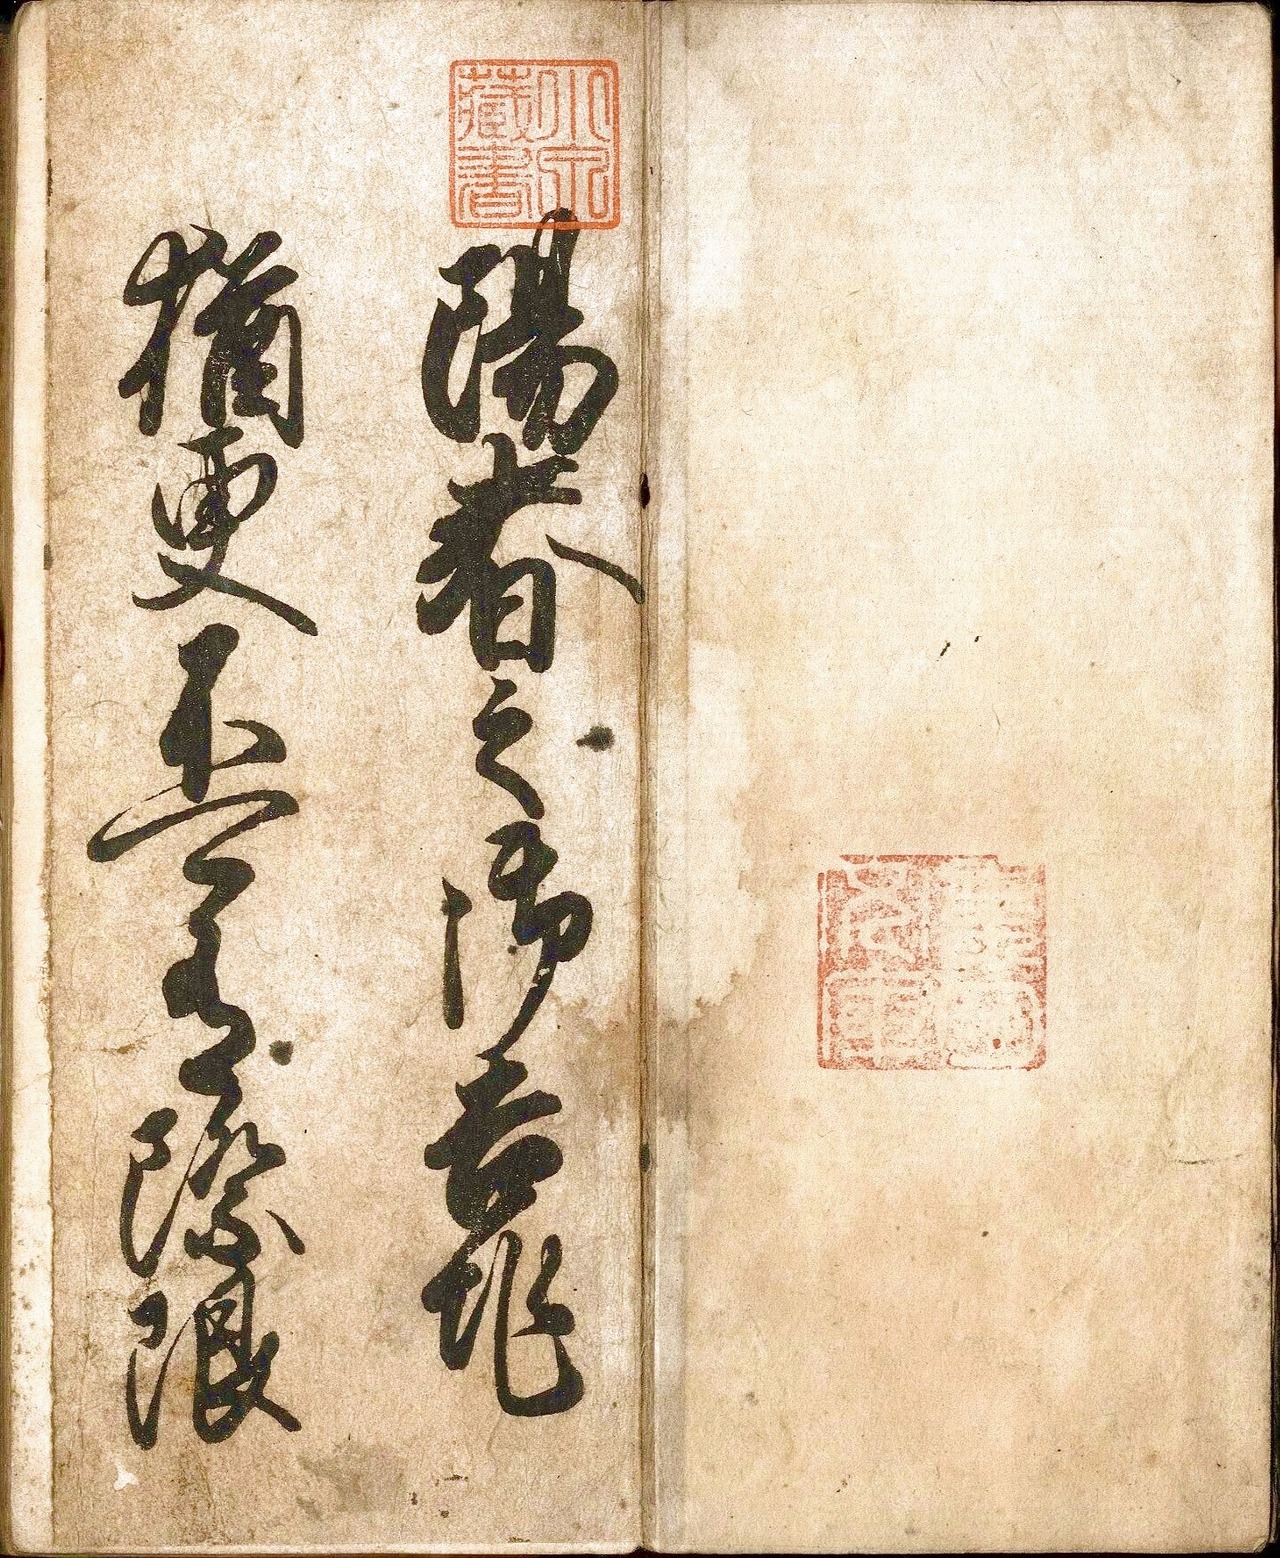 陽春之御吉兆
猶更不可有際限
小汀藏書